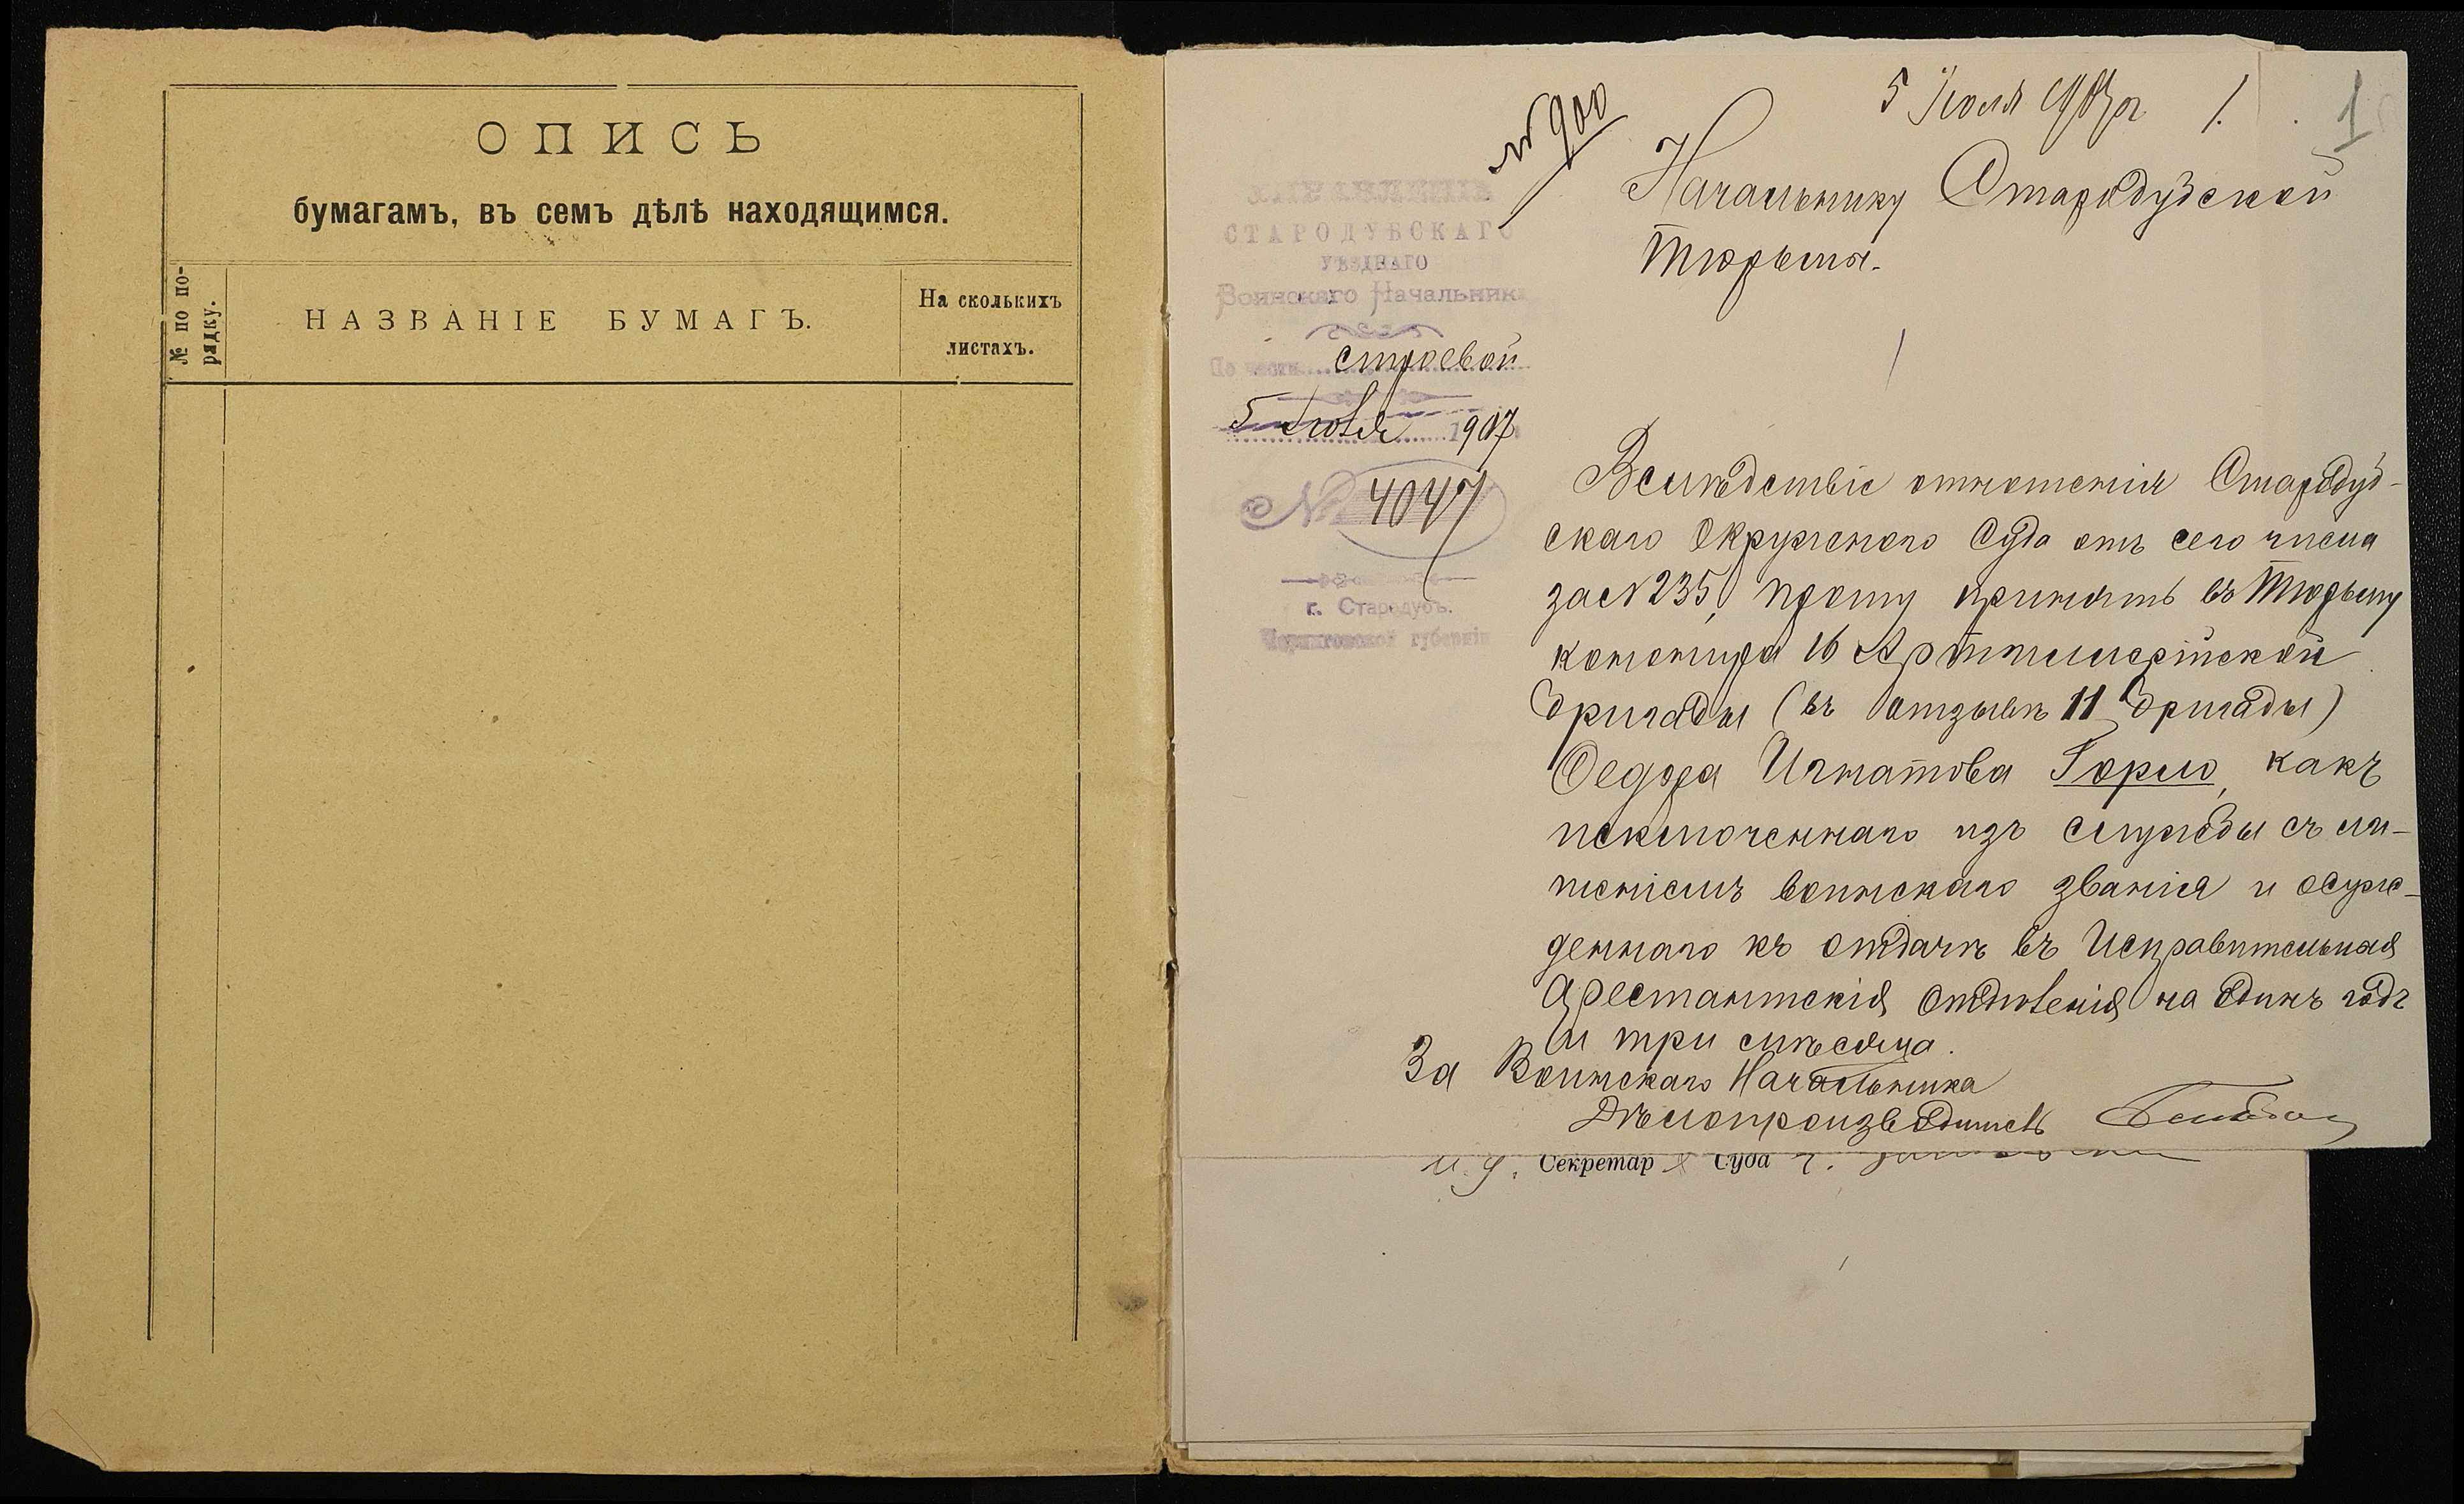 ОПИСЬ
бумагамъ, въ семъ дѣлѣ находящимся.
№ по по-
рядку.
НАЗВАНІЕ БУМАГЪ.
На сколькихъ
листахъ.
№ 900
5 Іюля 1907 г. 1. 1
Начальнику Стародубской
Тюрьмы.
УПРАВЛЕНІЕ
СТАРОДУБСКАГО
УѢЗДНАГО
Воинскаго Начальника
По части строевой
5 Іюля 1907
№ 4047
г. Стародубъ.
Черниговской губерніи
Вслѣдствіе отношенія Стародуб-
скаго Окружного Суда отъ сего числа
за № 235, прошу принять въ Тюрьму
канонира 16 Артиллерійской
бригады (въ отзывѣ 11 бригады)
Федора Игнатова Горло, какъ
исключеннаго изъ службы съ ли-
шеніемъ воинскаго званія и осуж-
деннаго къ отдачѣ въ Исправительныя
Арестантскія отдѣленія на одинъ годъ
и три мѣсяца.
За Воинскаго Начальника
Дѣлопроизводитель
И. д. Секретаря Суда